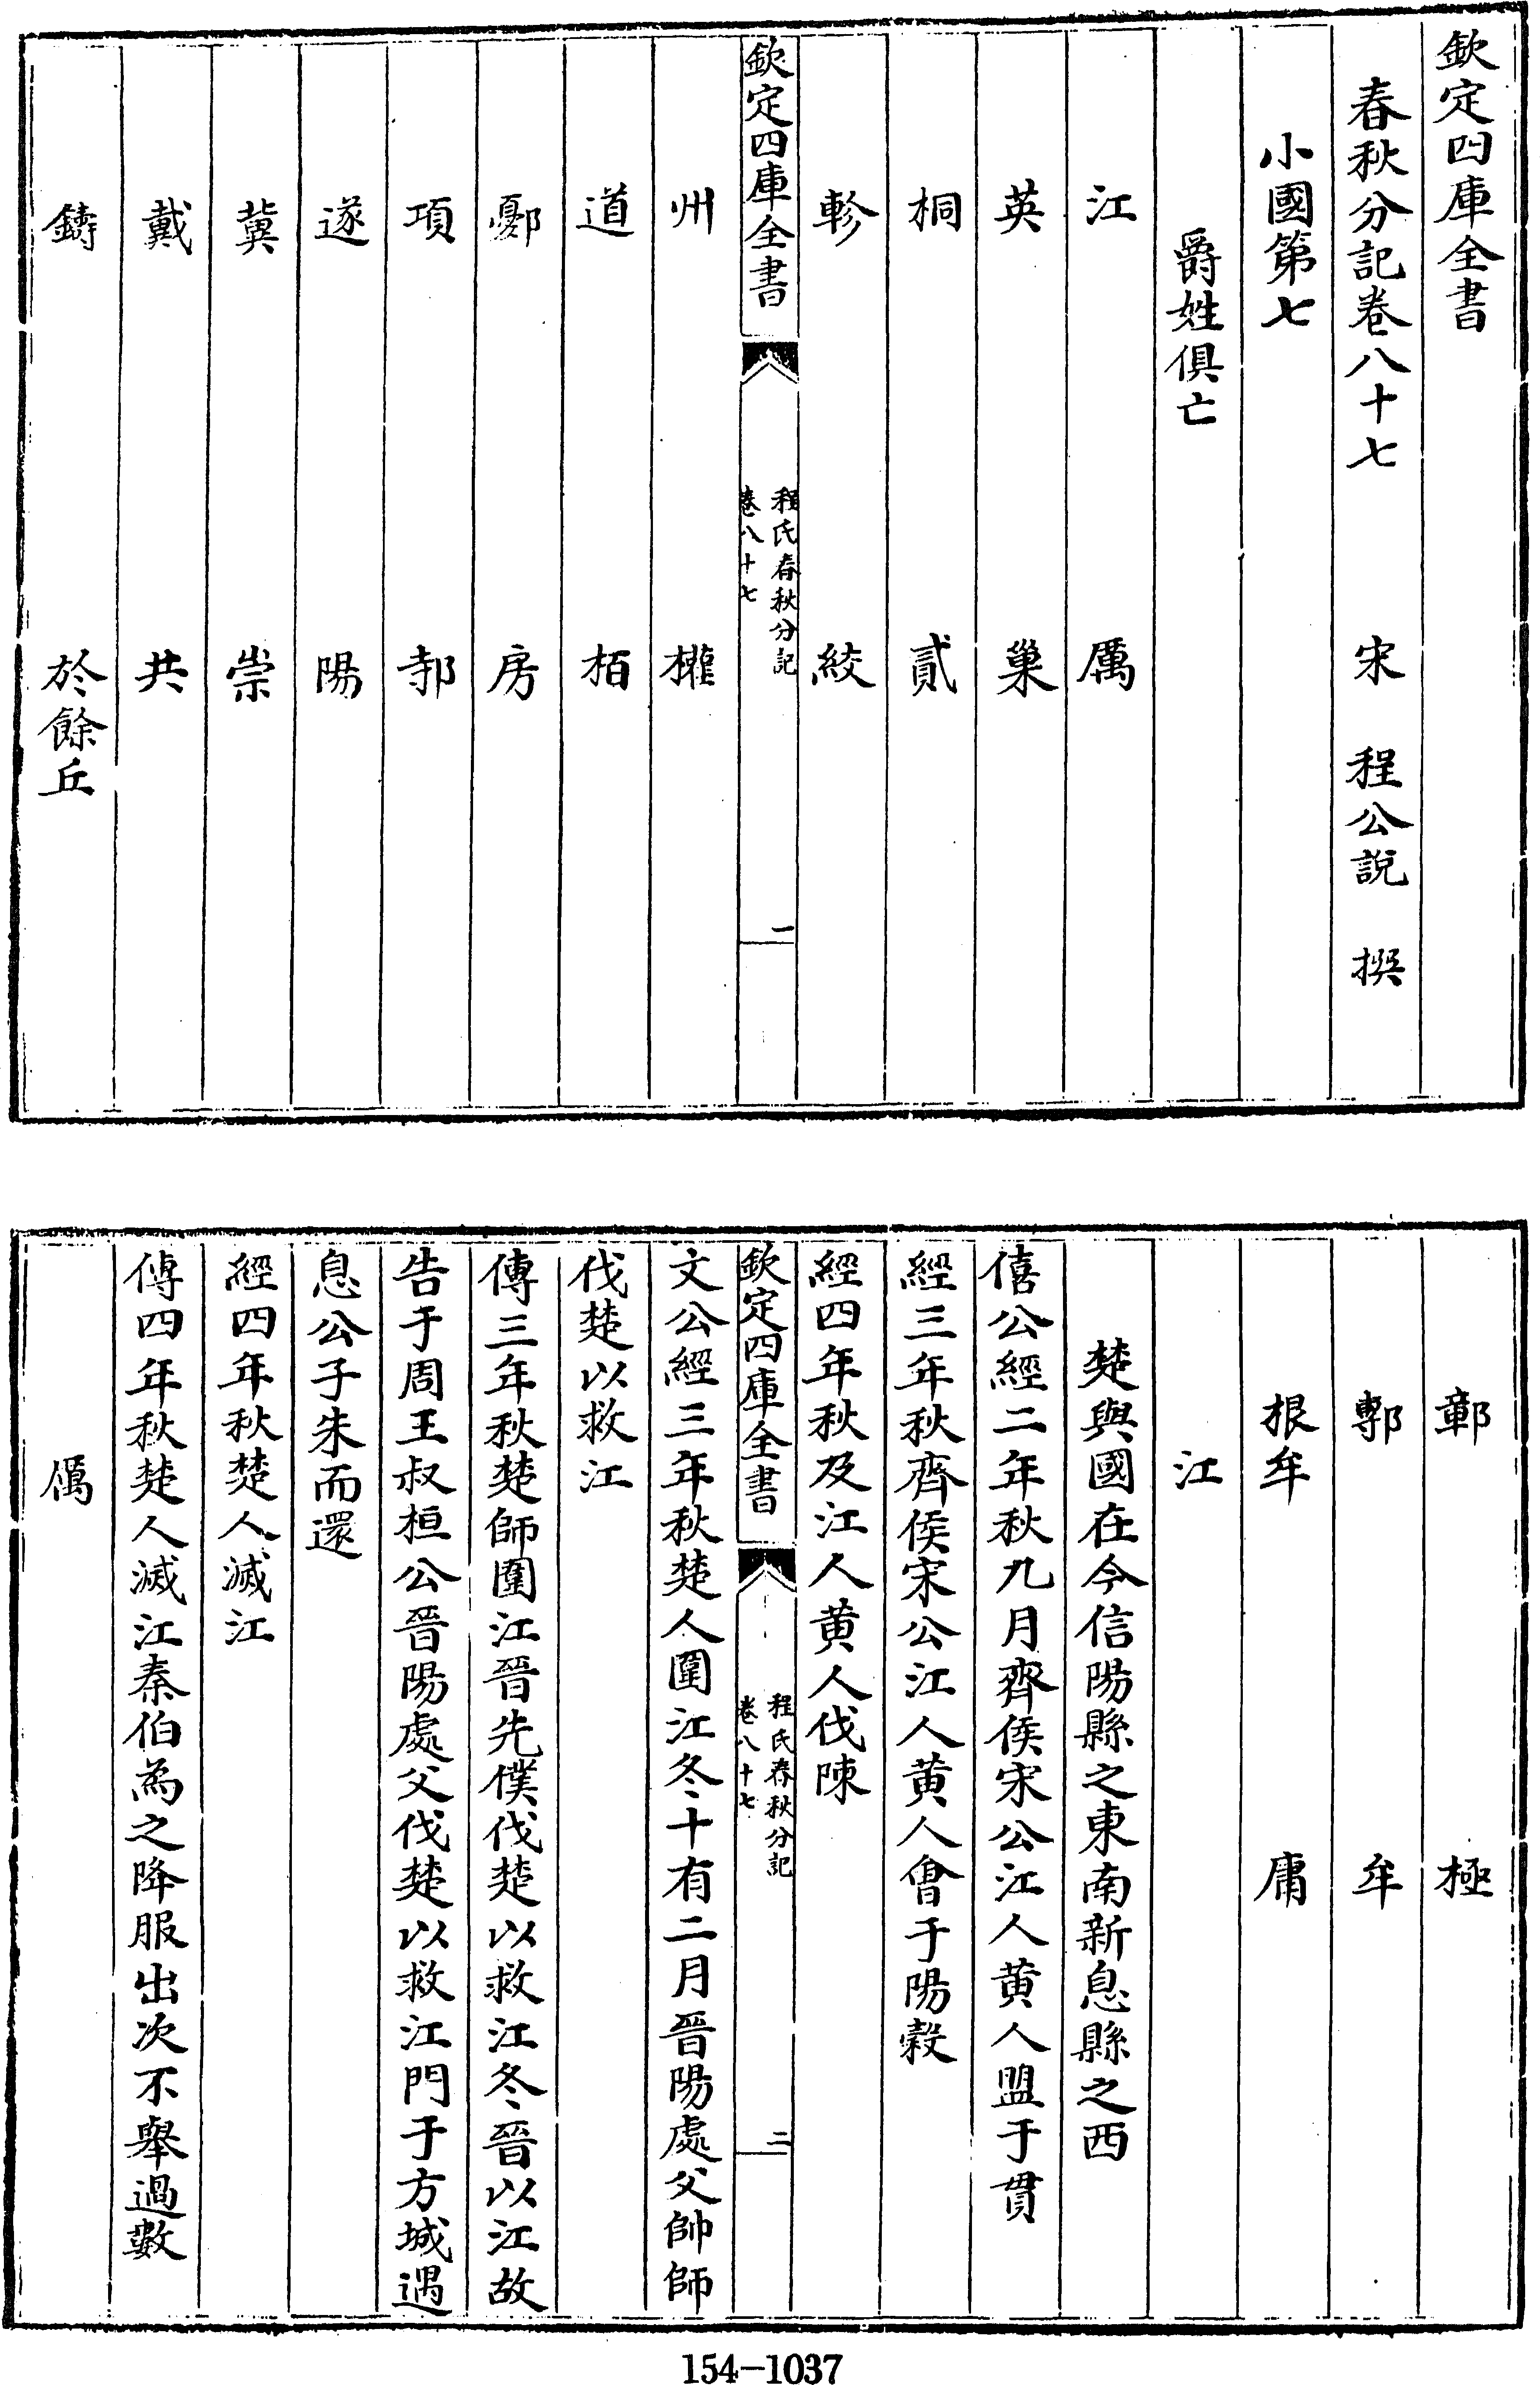 欽定四庫全書
春秋分記卷八十七　宋　程公說　撰
小國第七
爵姓俱亡
江　厲
英　巢
桐　貳
軫　絞
欽定四庫全書
程氏春秋分記
卷八十七
一
州　權
道　栢
鄾　房
項　邿
遂　陽
冀　崇
戴　共
鑄　於餘丘
鄣　極
鄟　牟
根牟　庸
江
楚與國在今信陽縣之東南新息縣之西
僖公經二年秋九月齊侯宋公江人黃人盟于貫
經三年秋齊侯宋公江人黃人會于陽榖
經四年秋及江人黃人伐陳
欽定四庫全書
程氏春秋分記
卷八十七
二
文公經三年秋楚人圍江冬十有二月晉陽處父帥師
伐楚以救江
傳三年秋楚師圍江晉先僕伐楚以救江冬晉以江故
告于周王叔桓公晉陽處父伐楚以救江門于方城遇
息公子朱而還
經四年秋楚人滅江
傳四年秋楚人滅江秦伯為之降服出次不舉過數
厲
154-1037